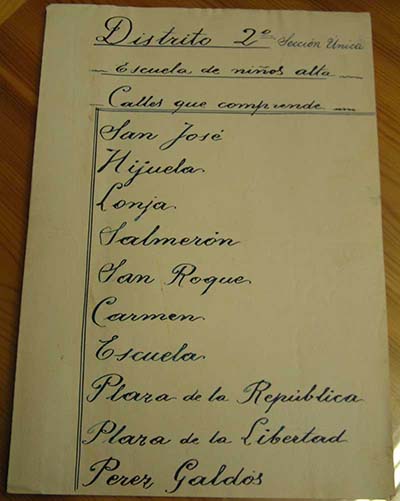 Distrito 2º Sección Única
Escuela de niños alta
Calles que comprende
San José
Hijuela
Lonja
Salmerón
San Roque
Carmen
Escuela
Plaza de la República
Plaza de la Libertad
Perez Galdós